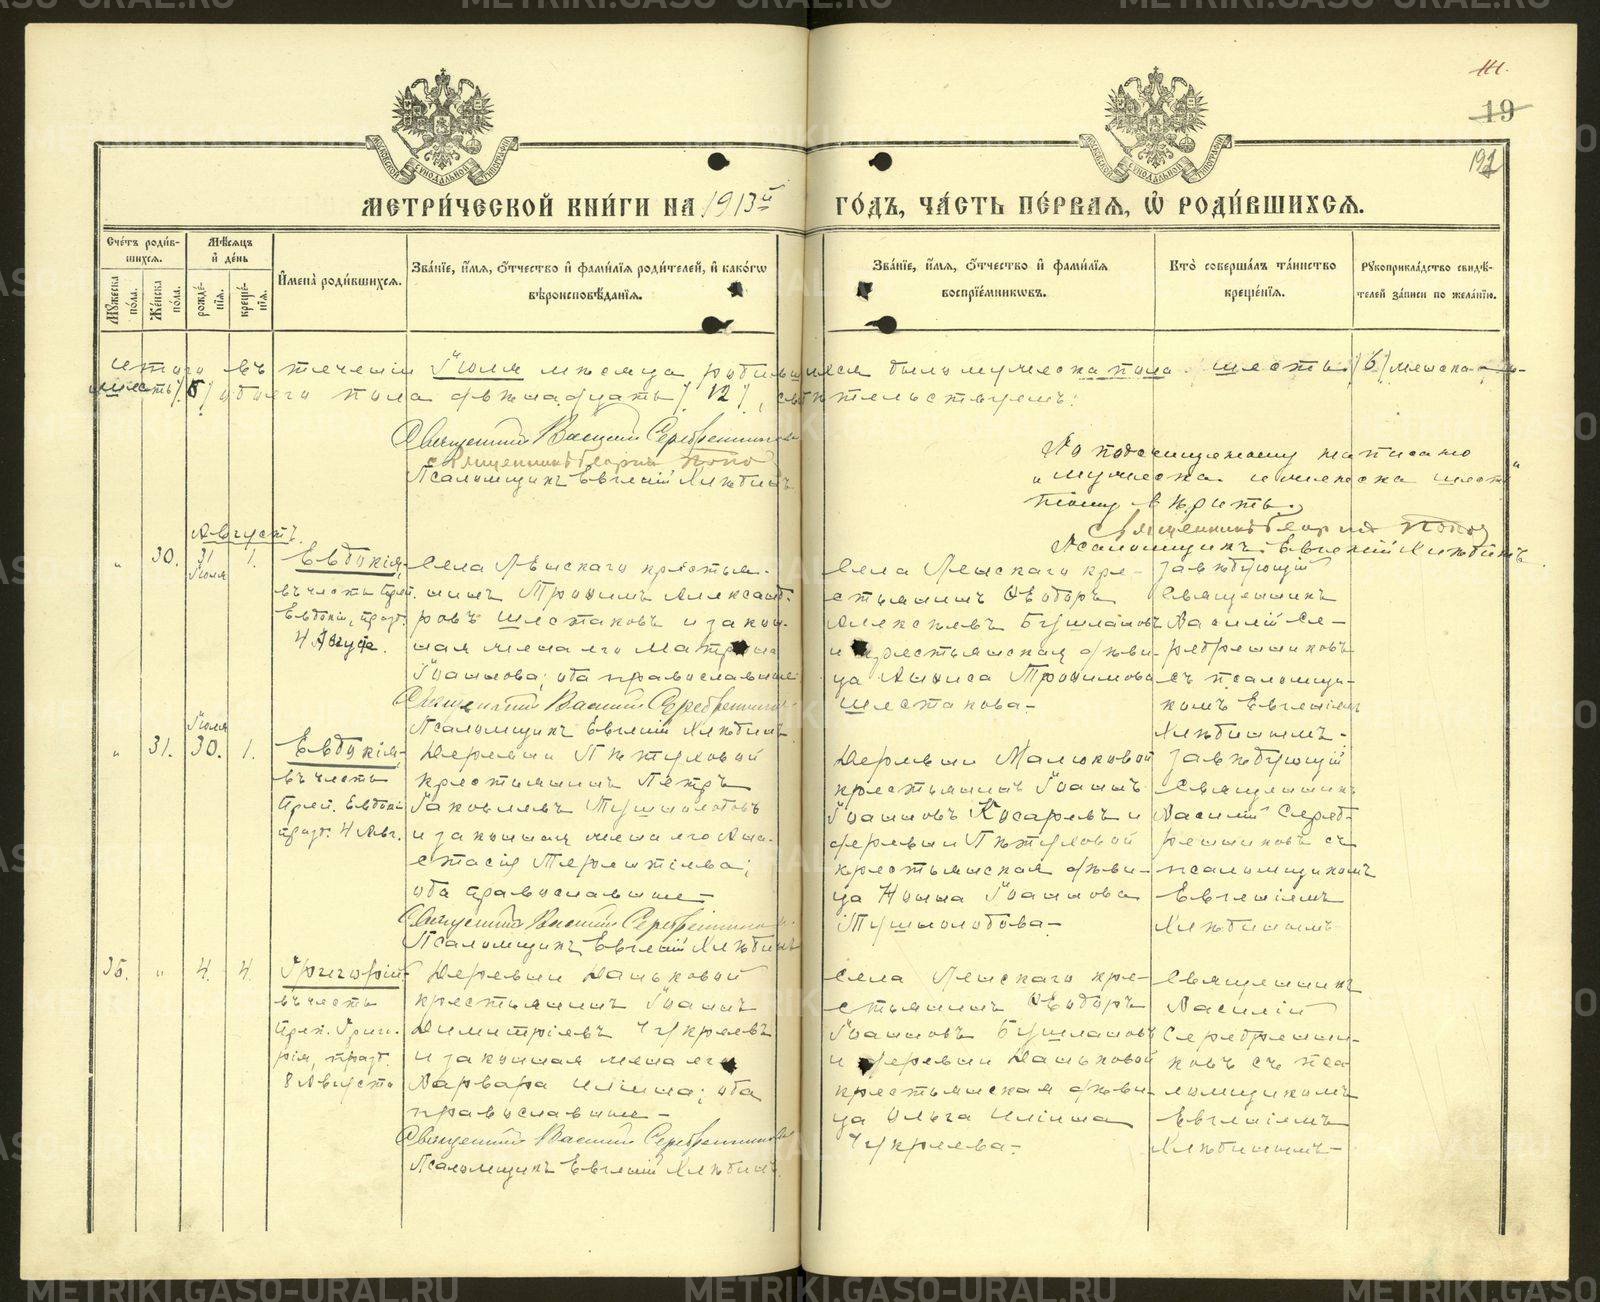 111.
19
192
МЕТРИ́ЧЕСКОЙ КНИ́ГИ НА 1913й ГО́ДЪ, ЧА́СТЬ ПЕ́РВАЯ, Ѽ РОДИ́ВШИХСЯ.
Сче́тъ роди́вшихся.
Мѣ́сяцъ и҆ де́нь
Мꙋ́жеска по́ла.
Же́нска по́ла.
рожде́нїѧ.
креще́нїѧ.
И҆мена̀ роди́вшихся.
Зва́нїе, и҆́мѧ, ѻ҆́тчество и҆ фами́лїѧ роди́телей, и҆ како́гѡ
вѣроисповѣ́данїѧ.
Зва́нїе, и҆́мѧ, ѻ҆́тчество и҆ фами́лїѧ
воспрїе́мникѡвъ.
Кто̀ соверша́лъ та́инство
креще́нїѧ.
Рꙋкоприкла́дство свидѣ́телей за́писи по жела́нїю.
Итого въ теченіи Іюля мѣсяца родившихся было мужеска пола шесть /6/ женска по-
шесть /6/ обоего пола двѣнадцать /12/, свидѣтельствуемъ:
Священникъ Василій Серебренниковъ
Священникъ Георгій Попо
Псаломщикъ Евгеній Хлѣбинъ
По подчищенному написано
„мужеска и женска шесть“
тому вѣрить.
Священникъ Георгій Попо
Псаломщикъ Евгеній Хлѣбинъ
Августъ.
„ 30. 31 Іюля 1.
Евдокія,
въ честь Прей.
Евдокіи, празд.
4 Августа.
Села Лѣнскаго крестья-
нинъ Трофимъ Александ-
ровъ Шестаковъ и закон-
ная жена его Матрона
Іоаннова; оба православные
Священникъ Василій Серебренниковъ
Псаломщикъ Евгеній Хлѣбинъ
Села Ленскаго кре-
стьянинъ Ѳеодоръ
Алексѣевъ Бушлановъ
и крестьянская дѣви-
ца Анѳиса Трофимова
Шестакова-
Завѣдующій
Священникъ
Василій Се-
ребренниковъ
съ псаломщи-
комъ Евгеніемъ
Хлѣбинымъ-
„ 31. Іюля 30. 1.
Евдокія,
въ честь
Прей. Евдокіи
празд. 4 Авг.
Деревни Пѣтуховой
крестьянинъ Петръ
Іаковлевъ Тушнолобовъ
и законная жена его Ана-
стасія Терентіева;
оба православные-
Священникъ Василій Серебренниковъ
Псаломщикъ Евгеній Хлѣбинъ
Деревни Малюковой
крестьянинъ Іоаннъ
Іоанновъ Косаревъ и
деревни Пѣтуховой
крестьянская дѣви-
ца Нонна Іоаннова
Тушнолобова-
Завѣдующій
Священникъ
Василій Сереб-
ренниковъ съ
псаломщикомъ
Евгеніемъ
Хлѣбинымъ
35. „ 4. 4.
Григорій
въ честь
Преп. Григо-
рія, празд.
8 Августа
Деревни Даньковой
крестьянинъ Іоаннъ
Димитріевъ Чукреевъ
и законная жена его
Варвара Иліина; оба
православные-
Священникъ Василій Серебренниковъ
Псаломщикъ Евгеній Хлѣбинъ
Села Ленскаго кре-
стьянинъ Ѳеодоръ
Іоанновъ Бушлановъ
и деревни Даньковой
крестьянская дѣви-
ца Ольга Иліина
Чукреева-
Священникъ
Василій
Серебренни-
ковъ съ пса-
ломщикомъ
Евгеніемъ
Хлѣбинымъ-
METRIKI.GASO-URAL.RU